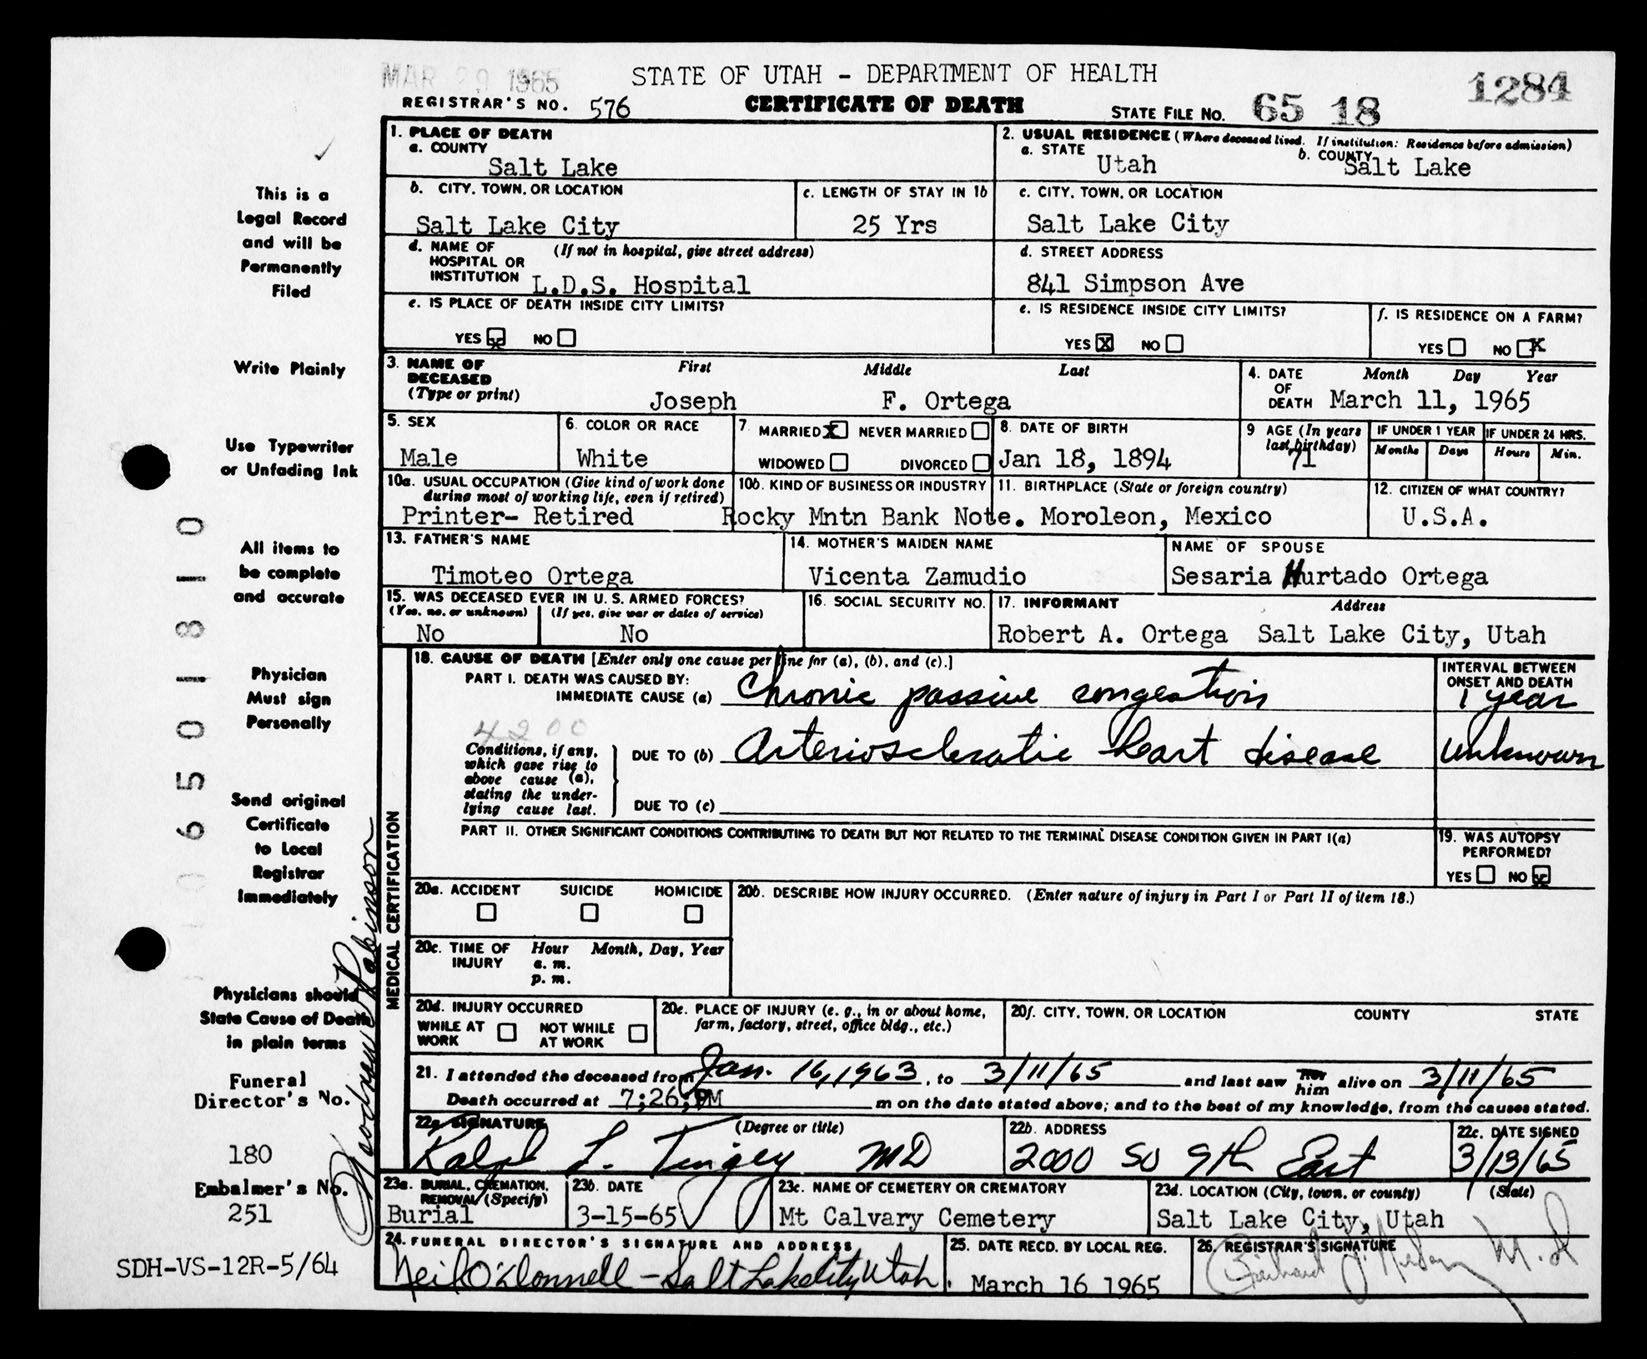 MAR 29 1965
STATE OF UTAH - DEPARTMENT OF HEALTH
1284
REGISTRAR'S NO. 576
CERTIFICATE OF DEATH
STATE FILE NO. 65 18
1. PLACE OF DEATH
a. COUNTY
Salt Lake
2. USUAL RESIDENCE (Where deceased lived. If institution: Residence before admission)
a. STATE
Utah
b. COUNTY
Salt Lake
b. CITY, TOWN, OR LOCATION
Salt Lake City
c. LENGTH OF STAY IN 1b
25 Yrs
c. CITY, TOWN, OR LOCATION
Salt Lake City
d. NAME OF HOSPITAL OR INSTITUTION (If not in hospital, give street address)
L.D.S. Hospital
d. STREET ADDRESS
841 Simpson Ave
e. IS PLACE OF DEATH INSIDE CITY LIMITS?
YES X NO
e. IS RESIDENCE INSIDE CITY LIMITS?
YES X NO
f. IS RESIDENCE ON A FARM?
YES NO X
3. NAME OF DECEASED (Type or print)
First Middle Last
Joseph F. Ortega
4. DATE OF DEATH
Month Day Year
March 11, 1965
5. SEX
Male
6. COLOR OR RACE
White
7. MARRIED X NEVER MARRIED
WIDOWED DIVORCED
8. DATE OF BIRTH
Jan 18, 1894
9 AGE (In years last birthday)
71
IF UNDER 1 YEAR
Months Days
IF UNDER 24 HRS.
Hours Min.
10a. USUAL OCCUPATION (Give kind of work done during most of working life, even if retired)
Printer- Retired
10b. KIND OF BUSINESS OR INDUSTRY
Rocky Mntn Bank Note.
11. BIRTHPLACE (State or foreign country)
Moroleon, Mexico
12. CITIZEN OF WHAT COUNTRY?
U.S.A.
13. FATHER'S NAME
Timoteo Ortega
14. MOTHER'S MAIDEN NAME
Vicenta Zamudio
NAME OF SPOUSE
Sesaria Hurtado Ortega
15. WAS DECEASED EVER IN U.S. ARMED FORCES?
(Yes, no, or unknown) (If yes, give war or dates of service)
No No
16. SOCIAL SECURITY NO.
17. INFORMANT Address
Robert A. Ortega Salt Lake City, Utah
MEDICAL CERTIFICATION
18. CAUSE OF DEATH [Enter only one cause per line for (a), (b), and (c).]
INTERVAL BETWEEN ONSET AND DEATH
PART I. DEATH WAS CAUSED BY:
IMMEDIATE CAUSE (a) Chronic passive congestion
1 year
4200
Conditions, if any, which gave rise to above cause (a), stating the underlying cause last.
DUE TO (b) Arteriosclerotic heart disease
unknown
DUE TO (c)
PART II. OTHER SIGNIFICANT CONDITIONS CONTRIBUTING TO DEATH BUT NOT RELATED TO THE TERMINAL DISEASE CONDITION GIVEN IN PART I(a)
19. WAS AUTOPSY PERFORMED?
YES NO X
20a. ACCIDENT SUICIDE HOMICIDE
20b. DESCRIBE HOW INJURY OCCURRED. (Enter nature of injury in Part I or Part II of item 18.)
20c. TIME OF INJURY Hour Month, Day, Year
a. m.
p. m.
20d. INJURY OCCURRED
WHILE AT WORK NOT WHILE AT WORK
20e. PLACE OF INJURY (e. g., in or about home, farm, factory, street, office bldg., etc.)
20f. CITY, TOWN, OR LOCATION COUNTY STATE
21. I attended the deceased from Jan. 16, 1963, to 3/11/65 and last saw her him alive on 3/11/65
Death occurred at 7;26;PM m on the date stated above; and to the best of my knowledge, from the causes stated.
22a SIGNATURE (Degree or title)
Ralph L. Tingey MD
22b. ADDRESS
2000 So 9th East
22c. DATE SIGNED
3/13/65
23a. BURIAL, CREMATION, REMOVAL (Specify)
Burial
23b. DATE
3-15-65
23c. NAME OF CEMETERY OR CREMATORY
Mt Calvary Cemetery
23d. LOCATION (City, town, or county) (State)
Salt Lake City, Utah
24. FUNERAL DIRECTOR'S SIGNATURE AND ADDRESS
Neil O'Donnell - Salt Lake City Utah.
25. DATE RECD. BY LOCAL REG.
March 16 1965
26. REGISTRAR'S SIGNATURE
M.D
This is a
Legal Record
and will be
Permanently
Filed
Write Plainly
Use Typewriter
or Unfading Ink
All items to
be complete
and accurate
Physician
Must sign
Personally
Send original
Certificate
to Local
Registrar
Immediately
Physicians should
State Cause of Death
in plain terms
Funeral
Director's No.
180
Embalmer's No.
251
SDH-VS-12R-5/64
06501810
Robinson